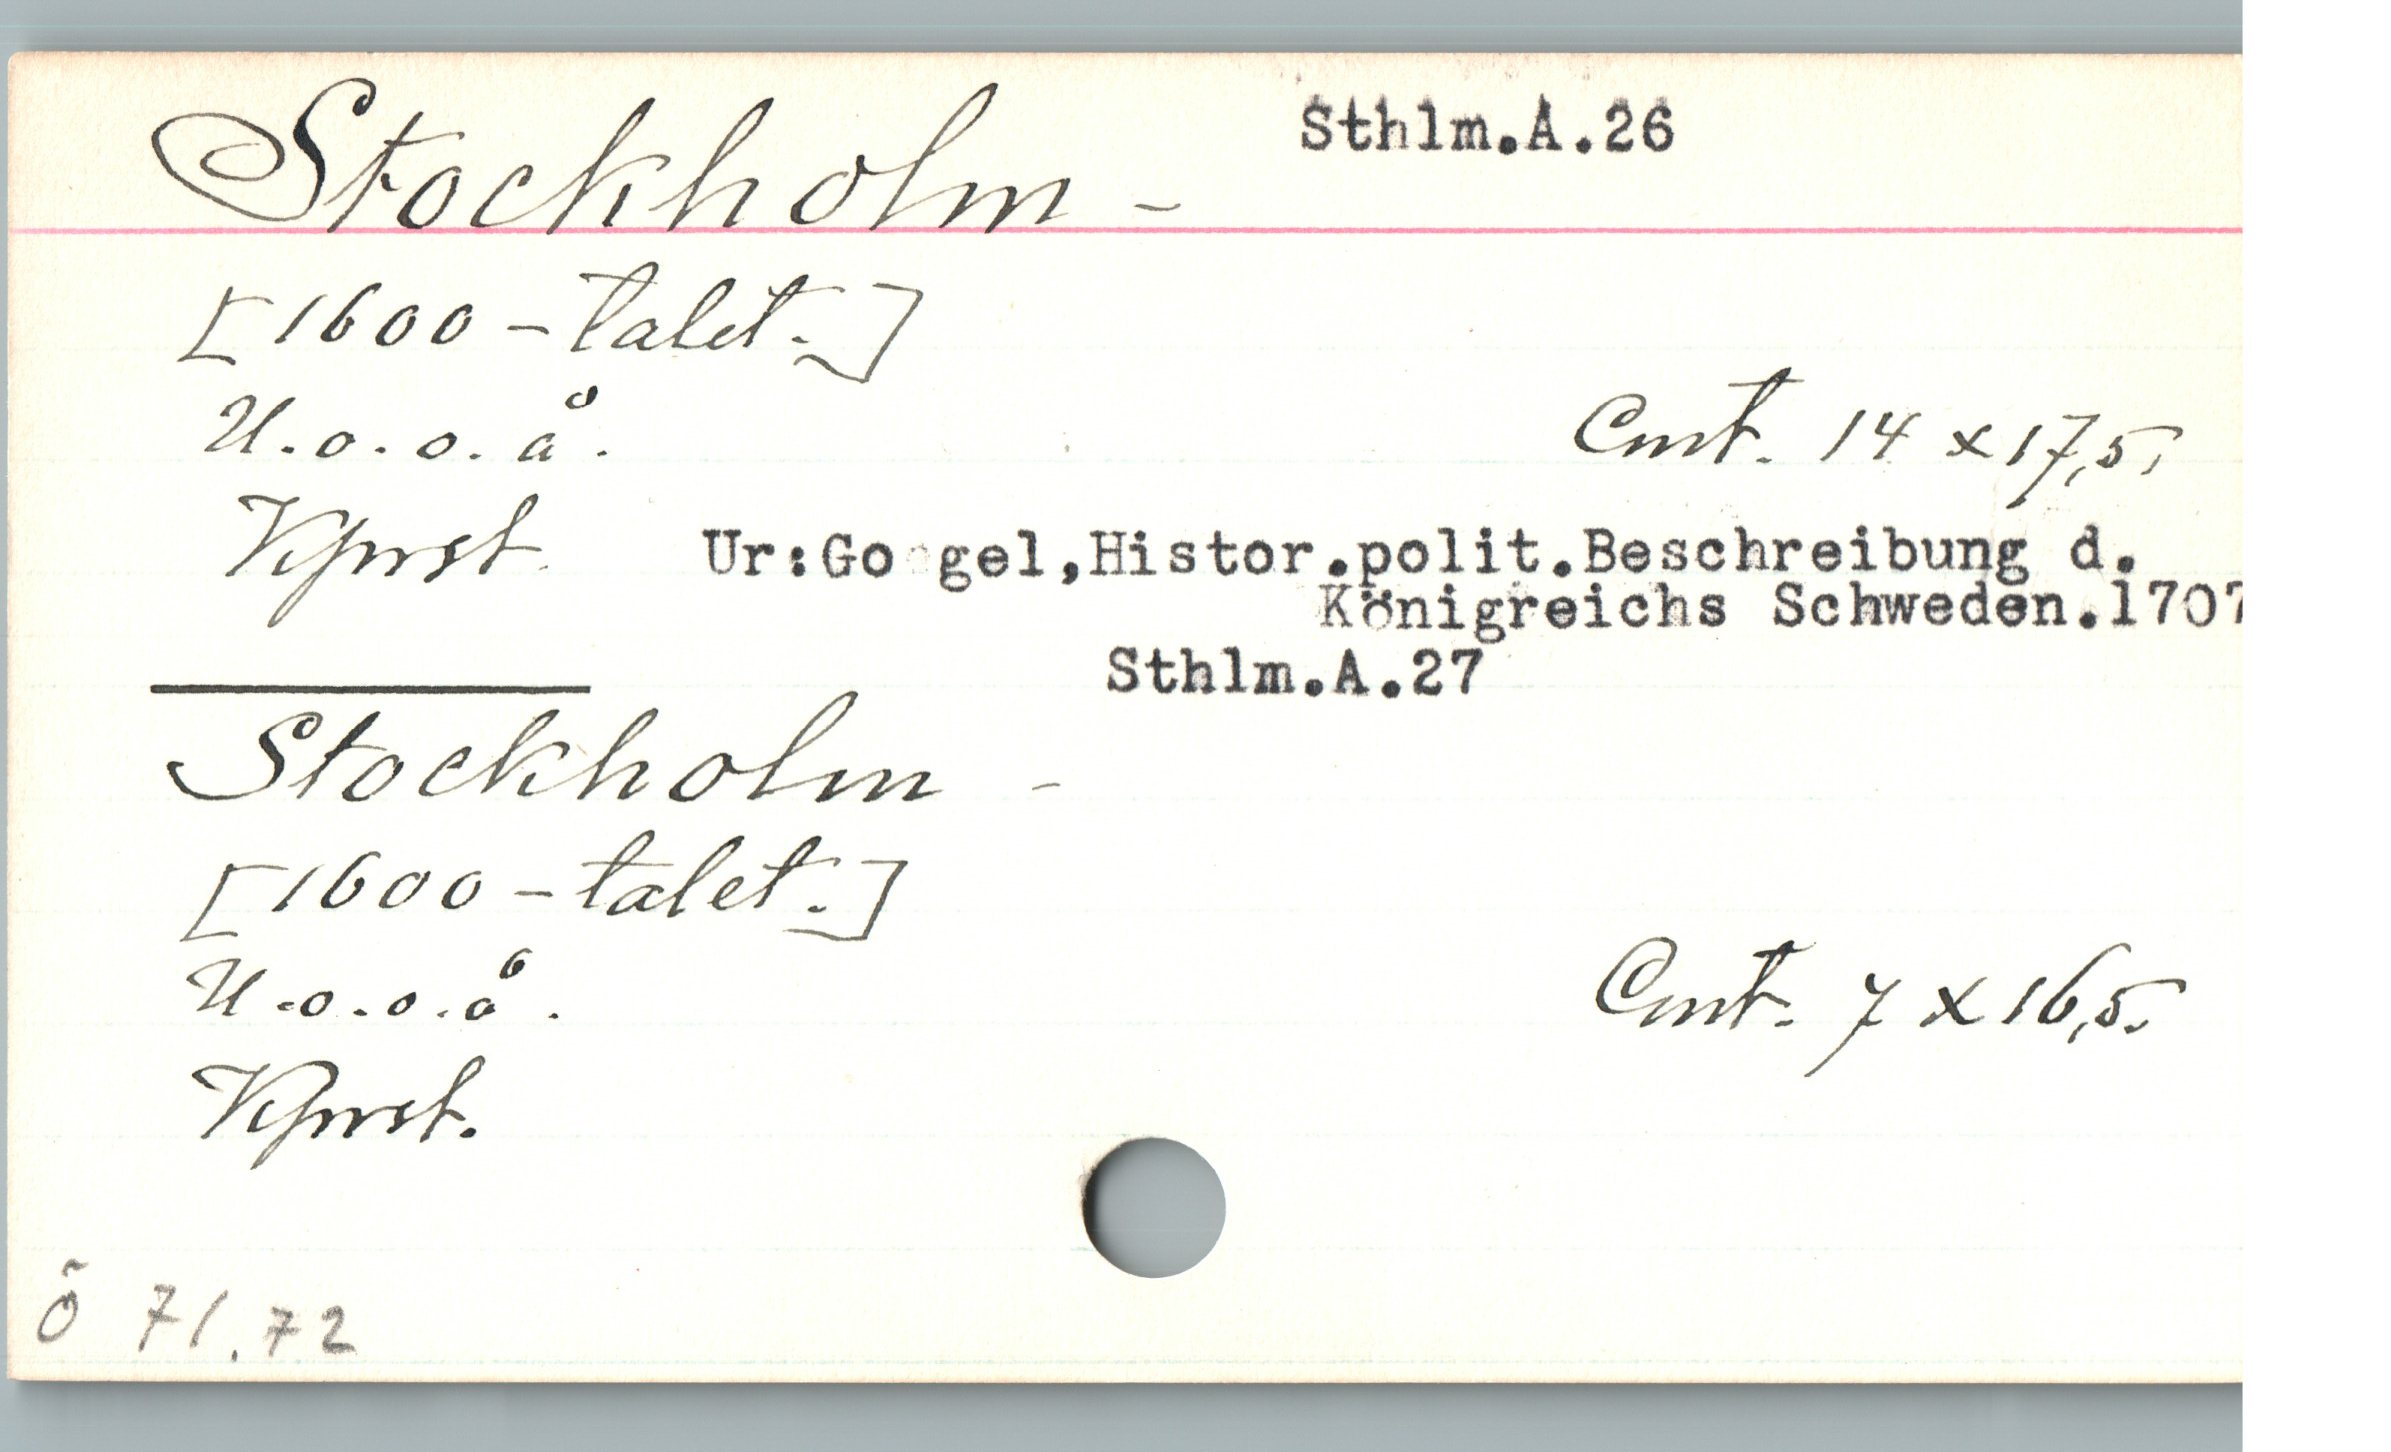 Stockholm - Sthlm.A.26
[1600-talet.]
U.o.o.å. Cmt. 14 x 17,5.
Kprst. Ur:Go gel,Histor.polit.Beschreibung d.
Königreichs Schweden.1707
Sthlm.A.27
Stockholm -
[1600-talet.]
U.o.o.å. Cmt. 7 x 16,5.
Kprst.
Ö 71.72